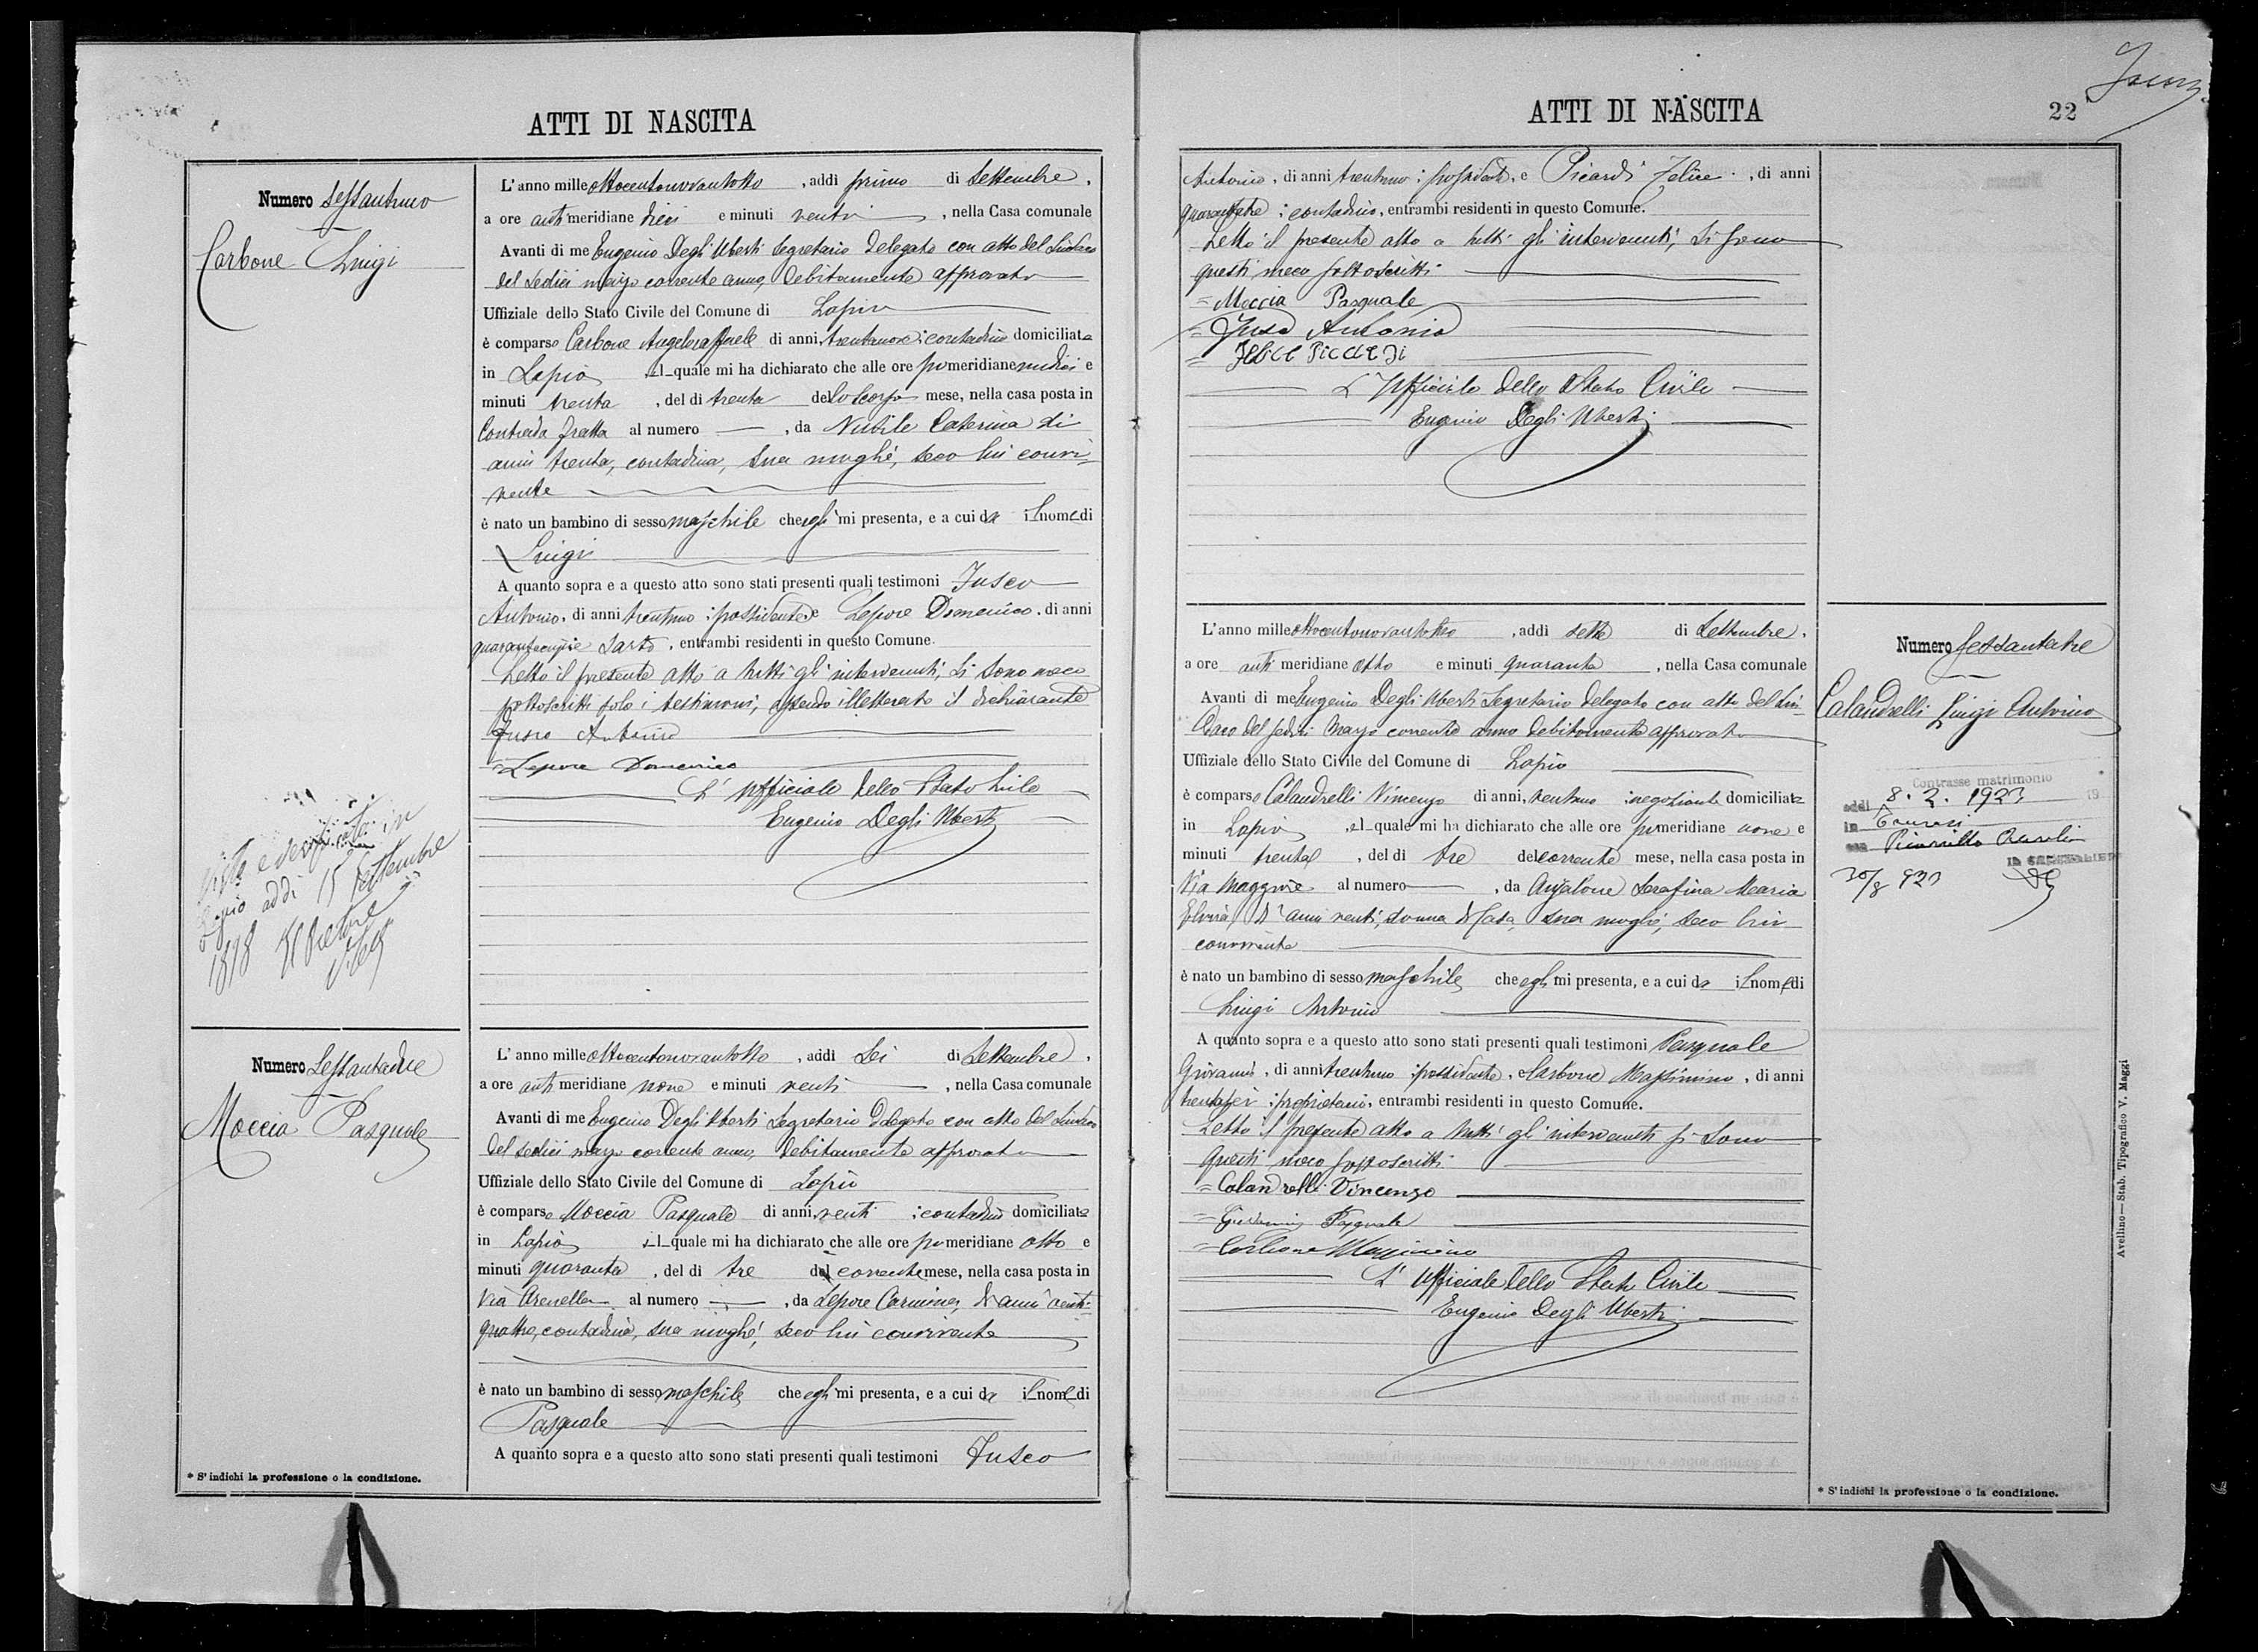 ATTI DI NASCITA
Numero sessantuno
Carbone Luigi
L'anno mille ottocentonovantotto, addì primo di Settembre,
a ore anti meridiane dieci e minuti venti, nella Casa comunale
Avanti di me Eugenio Degli Uberti Segretario Delegato con atto del Sindaco
del sedici marzo corrente anno, debitamente approvato
Uffiziale dello Stato Civile del Comune di Lapio
è comparso Carbone Angeloraffaele di anni trentanove contadino domiciliato
in Lapio, il quale mi ha dichiarato che alle ore pomeridiane undici e
minuti trenta, del dì trenta dello scorso mese, nella casa posta in
Contrada Fratta al numero —, da Nubile Caterina di
anni trenta, contadina, sua moglie, seco lui convi-
vente
è nato un bambino di sesso maschile che egli mi presenta, e a cui dà il nome di
Luigi
A quanto sopra e a questo atto sono stati presenti quali testimoni Fusco
Antonio, di anni trentuno possidente e Lepore Domenico, di anni
sarto, entrambi residenti in questo Comune.
Letto il presente atto a tutti gli intervenuti, si sono meco
sottoscritti solo i testimoni, essendo illetterato il dichiarante
Fusco Antonio
= Lepore Domenico
L'Ufficiale dello Stato Civile
Eugenio Degli Uberti
addì 15 Settembre
1898
Numero Sessantadue
Moccia Pasquale
L'anno mille ottocentonovantotto, addì sei di Settembre,
a ore anti meridiane nove e minuti venti, nella Casa comunale
Avanti di me Eugenio Degli Uberti Segretario Delegato con atto del Sindaco
del sedici marzo corrente anno, debitamente approvato
Uffiziale dello Stato Civile del Comune di Lapio
è comparso Moccia Pasquale di anni venti contadino domiciliato
in Lapio, il quale mi ha dichiarato che alle ore pomeridiane otto e
minuti quaranta, del dì tre del corrente mese, nella casa posta in
Via Arenella al numero —, da Lepore Carmina, di anni venti-
quattro, contadina, sua moglie, seco lui convivente
è nato un bambino di sesso maschile che egli mi presenta, e a cui dà il nome di
Pasquale
A quanto sopra e a questo atto sono stati presenti quali testimoni Fusco
* S'indichi la professione o la condizione.
ATTI DI NASCITA
22
Antonio, di anni trentuno possidente, e Picardi Felice, di anni
quarantatre contadino, entrambi residenti in questo Comune.
Letto il presente atto a tutti gli intervenuti, si sono
questi meco sottoscritti
= Moccia Pasquale
= Fusco Antonio
= Felice Picardi
L'Ufficiale dello Stato Civile
Eugenio Degli Uberti
Numero sessantatre
Calandrelli Luigi Antonio
Contrasse matrimonio
addì 8.2.1923 19
in Taurasi
con
30/8 923
L'anno mille ottocentonovantotto, addì sette di Settembre,
a ore anti meridiane otto e minuti quaranta, nella Casa comunale
Avanti di me Eugenio Degli Uberti Segretario Delegato con atto del Sin-
daco del sedici Marzo corrente anno debitamente approvato
Uffiziale dello Stato Civile del Comune di Lapio
è comparso Calandrelli Vincenzo di anni ventuno negoziante domiciliato
in Lapio, il quale mi ha dichiarato che alle ore pomeridiane nove e
minuti trenta, del dì tre del corrente mese, nella casa posta in
Via Maggiore al numero —, da Anzalone Serafina Maria
Elvira, di anni venti, donna di casa, sua moglie, seco lui
convivente
è nato un bambino di sesso maschile che egli mi presenta, e a cui dà il nome di
Luigi Antonio
A quanto sopra e a questo atto sono stati presenti quali testimoni Pasquale
Giovanni, di anni trentuno possidente, e Carbone Massimino, di anni
trentasei proprietario, entrambi residenti in questo Comune.
Letto il presente atto a tutti gli intervenuti si sono
questi meco sottoscritti
= Calandrelli Vincenzo
= Giovanni Pasquale
= Carbone Massimino
L'Ufficiale dello Stato Civile
Eugenio Degli Uberti
* S'indichi la professione o la condizione.
Avellino — Stab. Tipografico V. Maggi